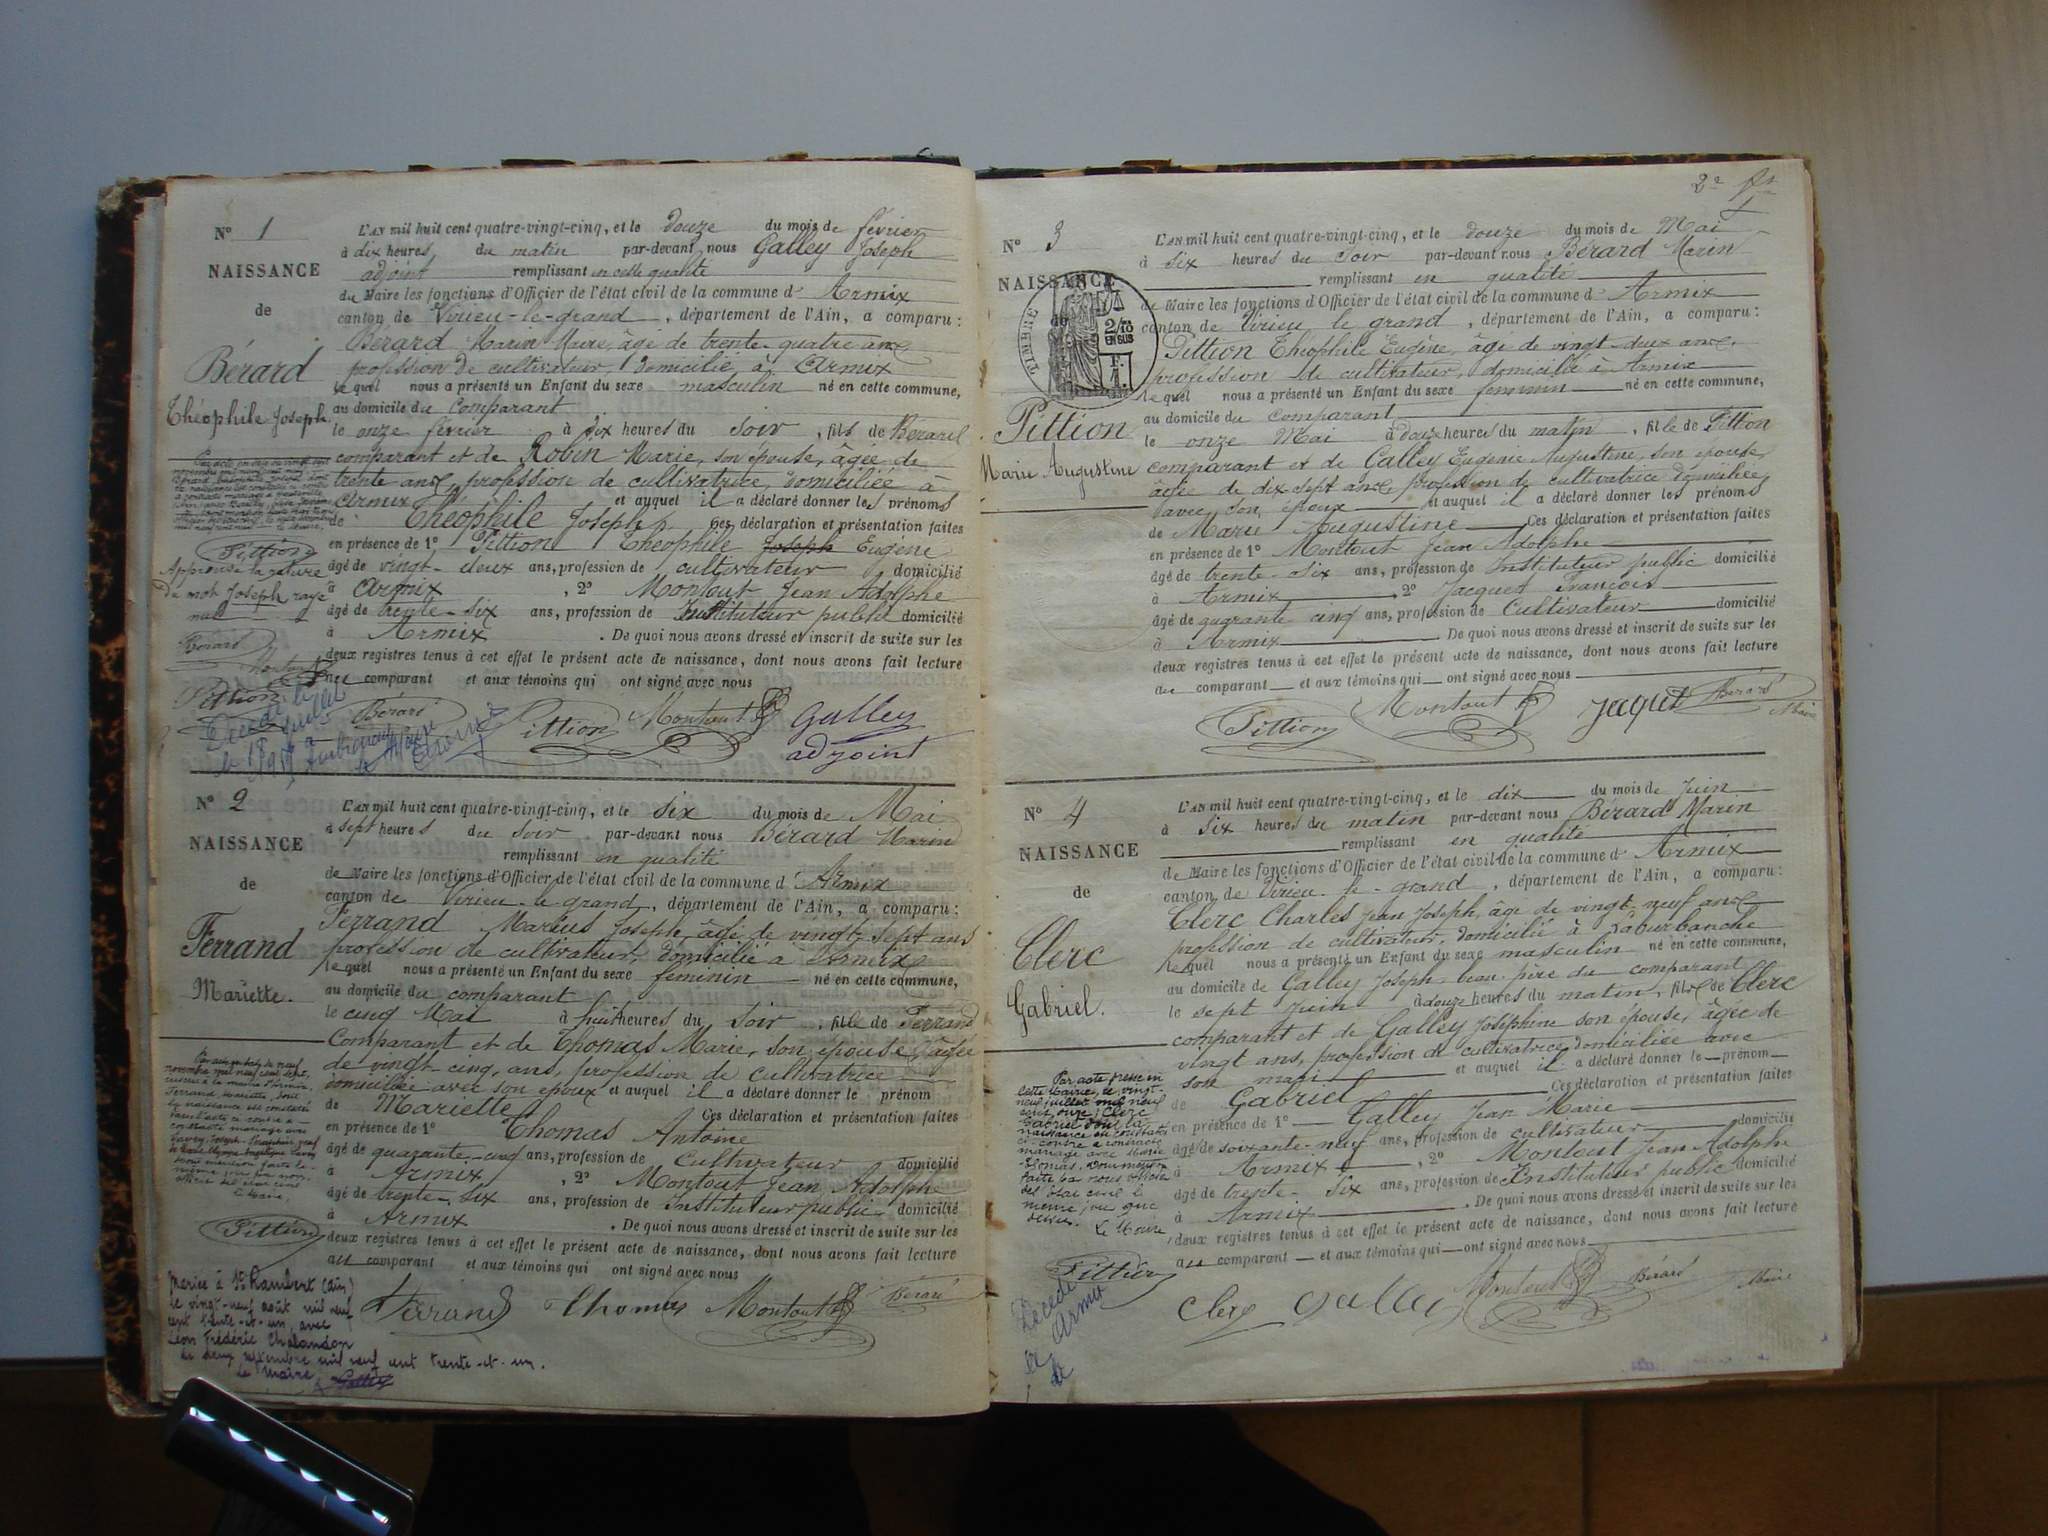 N° 1
NAISSANCE
de
Bérard
Théophile Joseph
L'AN mil huit cent quatre-vingt-cinq, et le douze du mois de février
à dix heures du matin par-devant nous Galley Joseph
adjoint remplissant en cette qualité
du Maire les fonctions d'Officier de l'état civil de la commune d' Armix
canton de Virieu-le-grand, département de l'Ain, a comparu :
Bérard Marin Maire, âgé de trente-quatre ans
profession de cultivateur, domicilié à Armix
lequel nous a présenté un Enfant du sexe masculin né en cette commune,
au domicile du comparant
le onze février à dix heures du soir, fils de Bérard
comparant et de Robin Marie, son épouse, âgée de
trente ans, profession de cultivatrice, domiciliée à
Armix et auquel il a déclaré donner les prénoms
de Théophile Joseph. Ces déclaration et présentation faites
en présence de 1° Pittion Théophile Joseph Eugène
âgé de vingt-deux ans, profession de cultivateur domicilié
à Armix, 2° Montout Jean Adolphe
âgé de trente-six ans, profession de Instituteur public domicilié
à Armix. De quoi nous avons dressé et inscrit de suite sur les
deux registres tenus à cet effet le présent acte de naissance, dont nous avons fait lecture
au comparant et aux témoins qui ont signé avec nous
Pittion
Approuvé la rature
du mot Joseph rayé
nul
Bérard
Pittion
Décédé le
juillet
Bérard Pittion Montout Galley
adjoint
N° 2
NAISSANCE
de
Ferrand
Mariette.
L'AN mil huit cent quatre-vingt-cinq, et le six du mois de Mai
à sept heures du soir par-devant nous Bérard Marin
remplissant en qualité
de Maire les fonctions d'Officier de l'état civil de la commune d' Armix
canton de Virieu-le-grand, département de l'Ain, a comparu :
Ferrand Marius Joseph, âgé de vingt-sept ans
profession de cultivateur, domicilié à Armix
lequel nous a présenté un Enfant du sexe féminin né en cette commune,
au domicile du comparant
le cinq Mai à huit heures du soir, fille de Ferrand
Comparant et de Thomas Marie, son épouse, âgée
de vingt-cinq, ans, profession de cultivatrice
domiciliée avec son époux et auquel il a déclaré donner le prénom
de Mariette. Ces déclaration et présentation faites
en présence de 1° Thomas Antoine
âgé de quarante-cinq ans, profession de Cultivateur domicilié
à Armix, 2° Montout Jean Adolphe
âgé de trente-six ans, profession de Instituteur public domicilié
à Armix. De quoi nous avons dressé et inscrit de suite sur les
deux registres tenus à cet effet le présent acte de naissance, dont nous avons fait lecture
au comparant et aux témoins qui ont signé avec nous
Par acte en date du neuf
novembre mil neuf cent sept,
Ferrand, Mariette, dont
la naissance est constatée
dans l'acte ci-contre a
contracté mariage avec
Pittion
Mariée à St Rambert (Ain)
le vingt-neuf août mil neuf
cent trente-et-un, avec
Léon Frédéric Chalandon
Le deux septembre mil neuf cent trente-et-un.
Le Maire
Galley
Ferrand Thomas Montout Bérard
2e ft
N° 3
NAISSANCE
de
TIMBRE
2/10
EN SUS
Pittion
Marie Augustine
L'AN mil huit cent quatre-vingt-cinq, et le douze du mois de Mai
à six heures du soir par-devant nous Bérard Marin
remplissant en qualité
de Maire les fonctions d'Officier de l'état civil de la commune d' Armix
canton de Virieu le grand, département de l'Ain, a comparu :
Pittion Théophile Eugène, âgé de vingt-deux ans,
profession de cultivateur, domicilié à Armix
lequel nous a présenté un Enfant du sexe féminin né en cette commune,
au domicile du comparant
le onze Mai à douze heures du matin, fille de Pittion
comparant et de Galley Eugénie Augustine, son épouse,
âgée de dix-sept ans, profession de cultivatrice domiciliée
avec son époux et auquel il a déclaré donner les prénoms
de Marie Augustine Ces déclaration et présentation faites
en présence de 1° Montout Jean Adolphe
âgé de trente-six ans, profession de Instituteur public domicilié
à Armix, 2° Jacquet François
âgé de quarante cinq ans, profession de Cultivateur domicilié
à Armix. De quoi nous avons dressé et inscrit de suite sur les
deux registres tenus à cet effet le présent acte de naissance, dont nous avons fait lecture
au comparant et aux témoins qui ont signé avec nous
Pittion Montout Jacquet Bérard
Maire
N° 4
NAISSANCE
de
Clerc
Gabriel.
L'AN mil huit cent quatre-vingt-cinq, et le dix du mois de Juin
à six heures du matin par-devant nous Bérard Marin
remplissant en qualité
de Maire les fonctions d'Officier de l'état civil de la commune d' Armix
canton de Virieu-le-grand, département de l'Ain, a comparu :
Clerc Charles Jean Joseph, âgé de vingt-neuf ans
profession de cultivateur, domicilié à Laburbanche
lequel nous a présenté un Enfant du sexe masculin né en cette commune,
au domicile de Galley Joseph beau-père du comparant
le sept Juin à douze heures du matin, fils de Clerc
comparant et de Galley Joséphine son épouse, âgée de
vingt ans, profession de cultivatrice domiciliée avec
son mari et auquel il a déclaré donner le prénom
de Gabriel Ces déclaration et présentation faites
en présence de 1° Galley Jean Marie
âgé de soixante-neuf ans, profession de cultivateur domicilié
à Armix, 2° Montout Jean Adolphe
âgé de trente-six ans, profession de Instituteur public domicilié
à Armix. De quoi nous avons dressé et inscrit de suite sur les
deux registres tenus à cet effet le présent acte de naissance, dont nous avons fait lecture
au comparant et aux témoins qui ont signé avec nous
Par acte dressé en
cette Mairie, le vingt-
neuf juillet mil neuf
cent onze, Clerc
Gabriel dont la
naissance est constatée
ci-contre a contracté
mariage avec Marie
Thomas. Dont mention
faite par nous officier
de l'état civil le
même jour que
dessus.
Le Maire,
Pittion
Décédé
Armix
Clerc Galley Montout Bérard Maire